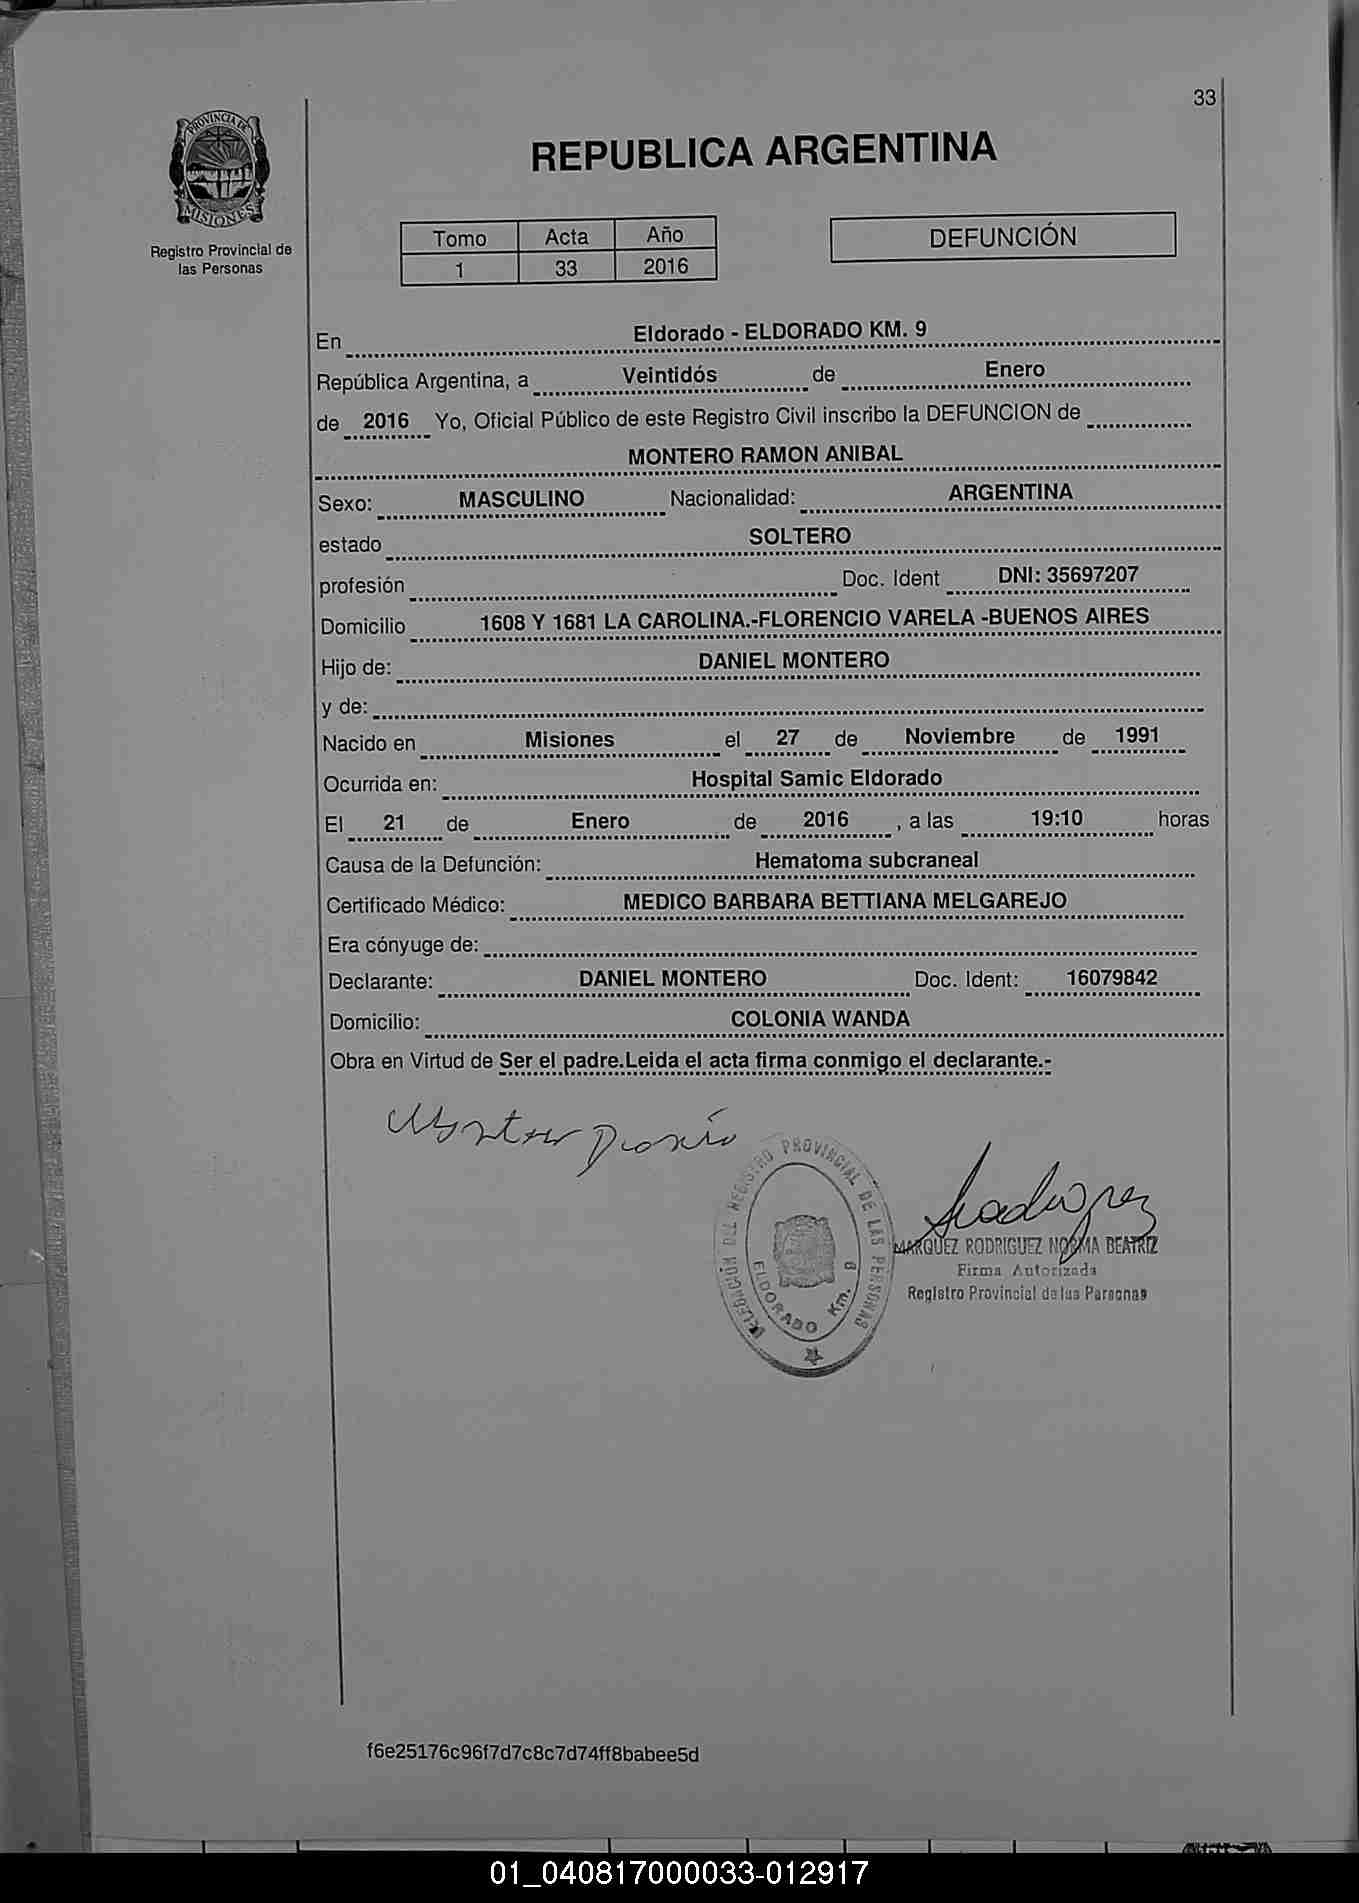 33
PROVINCIA DE
MISIONES
Registro Provincial de
las Personas
REPUBLICA ARGENTINA
Tomo Acta Año
1 33 2016
DEFUNCIÓN
En Eldorado - ELDORADO KM. 9
República Argentina, a Veintidós de Enero
de 2016 Yo, Oficial Público de este Registro Civil inscribo la DEFUNCION de
MONTERO RAMON ANIBAL
Sexo: MASCULINO Nacionalidad: ARGENTINA
estado SOLTERO
profesión Doc. Ident DNI: 35697207
Domicilio 1608 Y 1681 LA CAROLINA.-FLORENCIO VARELA -BUENOS AIRES
Hijo de: DANIEL MONTERO
y de:
Nacido en Misiones el 27 de Noviembre de 1991
Ocurrida en: Hospital Samic Eldorado
El 21 de Enero de 2016 , a las 19:10 horas
Causa de la Defunción: Hematoma subcraneal
Certificado Médico: MEDICO BARBARA BETTIANA MELGAREJO
Era cónyuge de:
Declarante: DANIEL MONTERO Doc. Ident: 16079842
Domicilio: COLONIA WANDA
Obra en Virtud de Ser el padre.Leida el acta firma conmigo el declarante.-
DELEGACION DEL REGISTRO PROVINCIAL DE LAS PERSONAS
ELDORADO Km.
MARQUEZ RODRIGUEZ NORMA BEATRIZ
Firma Autorizada
Registro Provincial de las Personas
f6e25176c96f7d7c8c7d74ff8babee5d
01_040817000033-012917